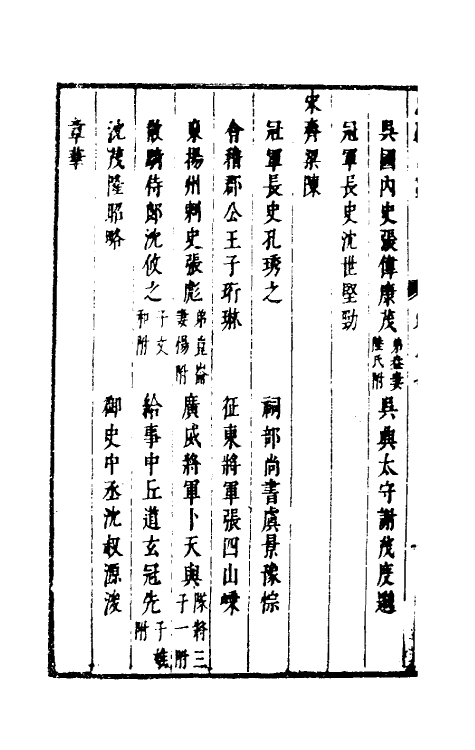 吳國內史張偉康茂 弟茬妻陸氏附 吳興太守謝茂度邈
冠軍長史沈世堅勁
宋齊梁陳
冠軍長史孔琇之 祠部尚書虞景豫悰
會稽郡公王子珩琳 征東將軍張四山嵊
東揚州刺史張彪 弟崑崙妻楊附 廣威將軍卜天與 隊將三子一附
散騎侍郎沈攸之 子文和附 給事中丘道玄冠先 子雄附
沈茂隆昭略 御史中丞沈叔源浚
章華